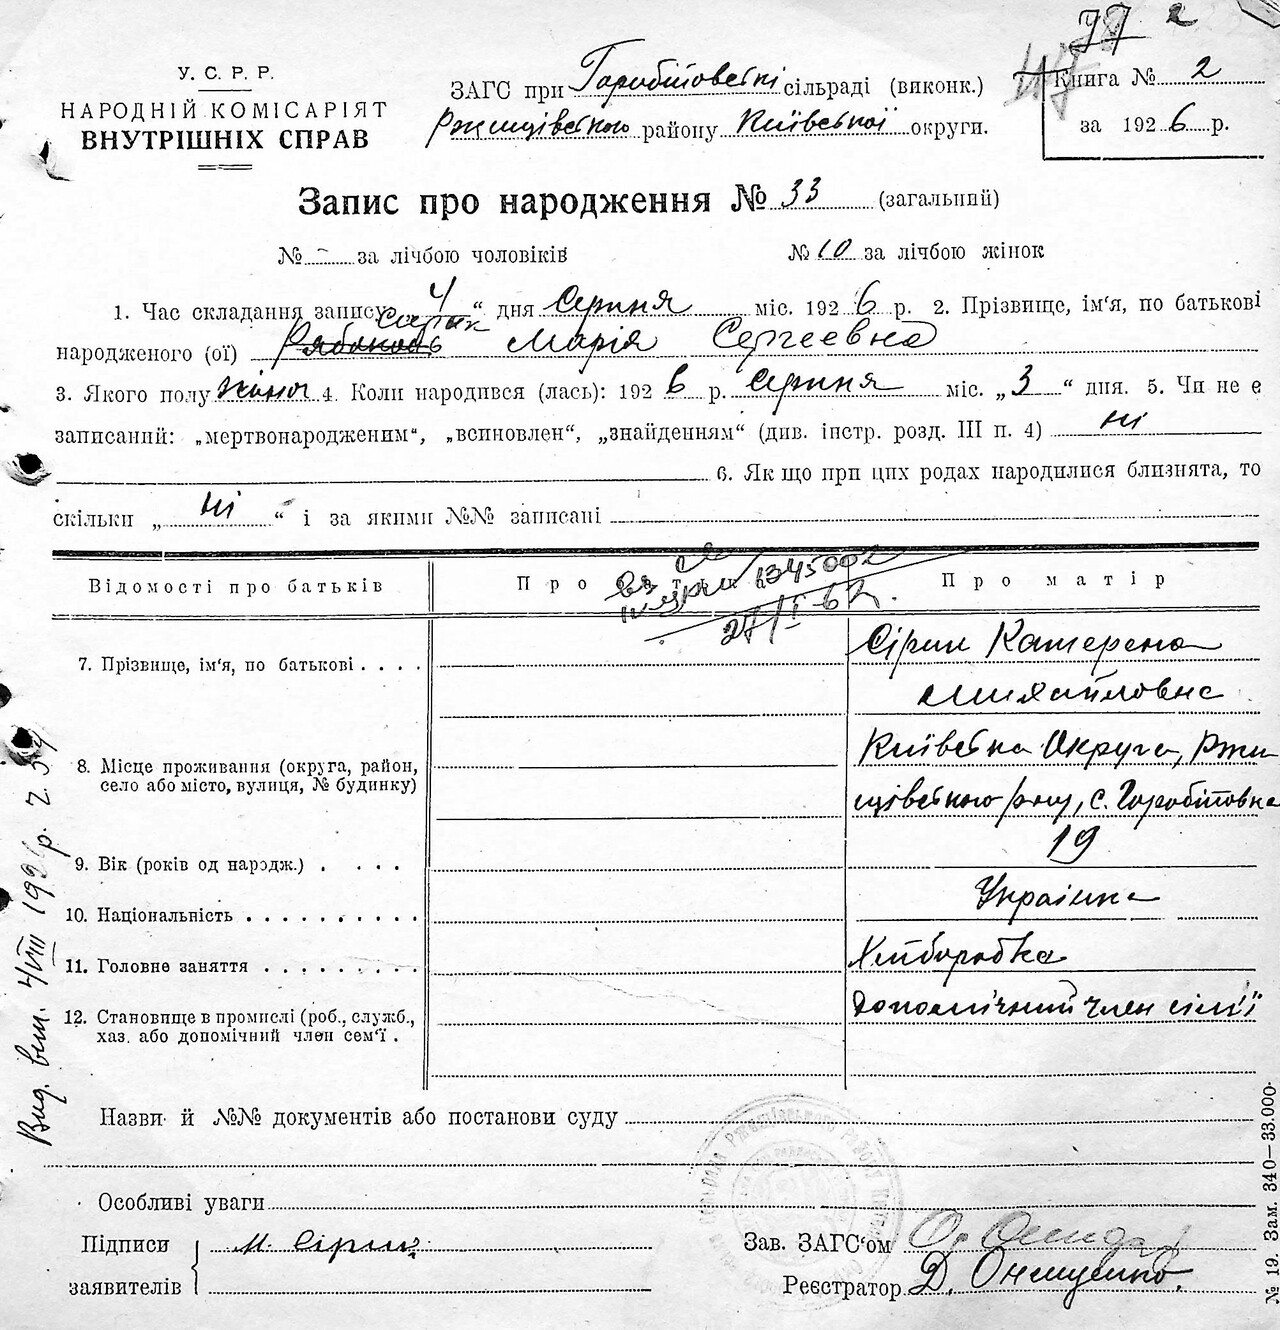 77 2
У. С. Р. Р.
НАРОДНІЙ КОМІСАРІЯТ
ВНУТРІШНІХ СПРАВ
ЗАГС при Горобіївській сільраді (виконк.)
Ржищівського району Київської округи.
Книга № 2
за 1926 р.
Запис про народження № 33 (загальний)
№ - за лічбою чоловіків № 10 за лічбою жінок
1. Час складання запису 4 “ дня Серпня міс. 1926 р. 2. Прізвище, ім'я, по батькові
Сірик
народженого (ої) Марія Сергеевна
3. Якого полу жіноч 4. Коли народився (лась): 1926 р. Серпня міс. „3“ дня. 5. Чи не є
записаний: „мертвонародженим“, „всиновлен“, „знайденням“ (див. інстр. розд. III п. 4) ні
6. Як що при цих родах народилися близнята, то
скільки „ ні “ і за якими №№ записані
Відомості про батьків Про батька Про матір
1345002
27/I-62.
7. Прізвище, ім'я, по батькові . . . . Сірик Катерена
Михайловна
8. Місце проживання (округа, район,
село або місто, вулиця, № будинку)
Київська Округа, Ржи-
щівського рну, с. Горобіївка
9. Вік (років од народж.) . . . . 19
10. Національність . . . . . . . . . . Українка
11. Головне заняття . . . . . . . . . Хліборобка
12. Становище в промислі (роб., служб.,
хаз. або допомічний член сем'ї .
Допомічний член сім'ї
Назви й №№ документів або постанови суду
Особливі уваги
Підписи
заявителів
М. Сірик
Зав. ЗАГС'ом
Реєстратор Д. Онищенко.
№ 19. Зам. 340—33.000.